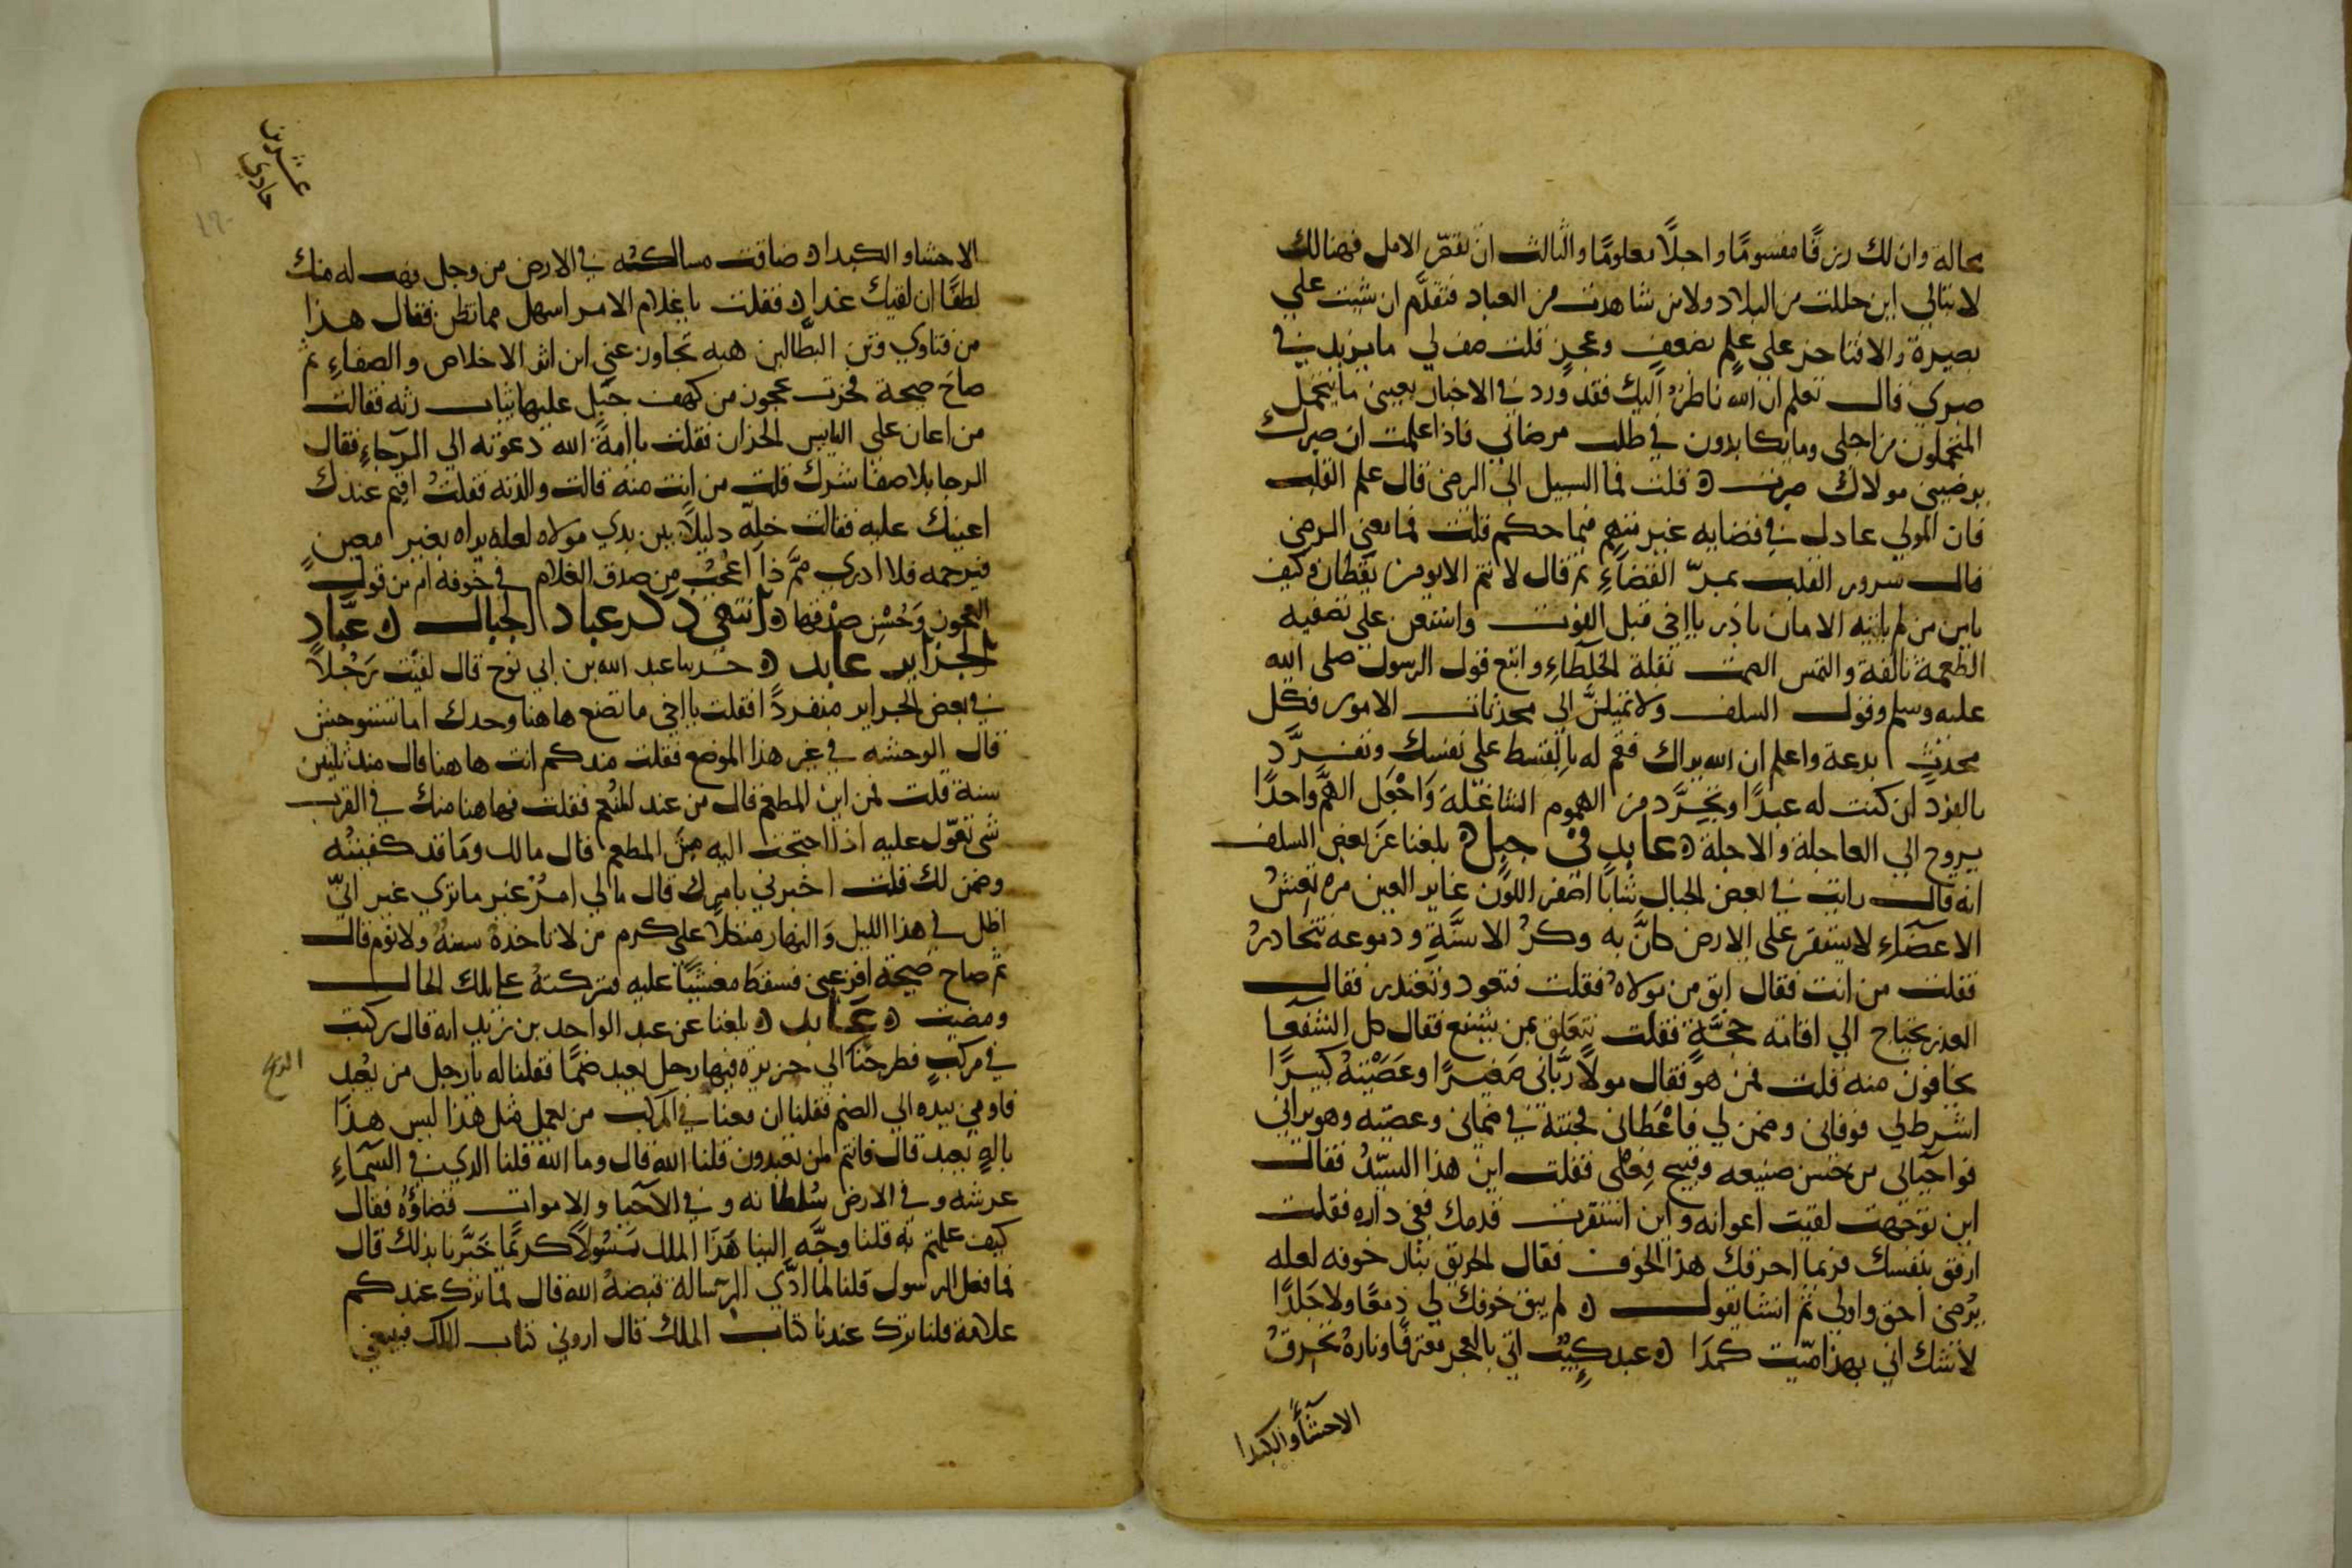 محالة وان لك رزقًا مقسومًا واجلًا معلومًا والثالث ان تقصّر الامل فهنالك
لا تبالي اين حللت من البلاد ولا من شاهدت من العباد فتقدَّم ان شيت علي
بصيرة والا فتاخر على علم بضعف وعجز قلت صف لي ما يزيد في
صبري قال تعلم ان الله ناظرٌ اليك فقد ورد في الاخبار بعيني ما يتحمل
المتحملون من اجلي وما يكابدون في طلب مرضاتي فاذا علمت ان صبرك
يرضيى مولاك صبرت ه قلت فما السبيل الى الرضى قال علم القلب
فان المولي عادل في قضايه غير متهم فيما حكم قلت فما معني الرضى
قال سرور القلب بمرّ القضاءِ ثم قال لا تنم الا يومن يقظان وكيف
يامن من لم ياتيه الامان بادر يا اخي قبل الفوت واستعن علي تصفيه
الطعمة تالفة والتمس الصمت بقلة الخلطاءِ واتبع قول الرسول صلى الله
عليه وسلم وقول السلف ولا تميلنَّ الي محدثات الامور فكل
محدثٍ بدعة واعلم ان الله يراك فقم له بالقسط على نفسك وتفرَّد
بالفرد ان كنت له عبدًا وتجرَّد من الهموم الشاغلة وَاجْعَل الهَّم واحدًا
يروح الي العاجلة والاجلة ه عابدٍ في جبلٍ ه بلغنا عن بعض السلف
انه قال رايت في بعض الجبال شابًا اصفر اللون غاير العين مرتعشُ
الاعضَاءِ لا يستقر على الارض كانَّ به وكزُ الاسنَّةِ ودموعه تتحادرُ
فقلت من انت فقال ابق من مولاهُ فقلت فتعود وتعتذر فقال
العذر يحتاج الي اقامة حجَّةٍ فقلت تتعلق بمن يشفع فقال كل الشفعا
يخافون منه قلت فمن هو فقال مولًا ربَّاني صَغيرًا وعَصَيْتهُ كبيرًا
اشرط لي فوفاني وضمن لي فاعْطَاني فخنته في ضماني وعصيته وهو يراني
فواحيآلى من حُسن صنيعه وقبيح فِعلى فقلت اين هذا السيّدُ فقال
اين توجهت لقيت اعوانه واين استقرت قدمك ففي داره فقلت
ارفق بنفسك فربما احرقك هذا الخوف فقال الحريق بنار خوفه لعله
يرْضى احق واولي ثم انشا يقول ه لم يبق خوفك لي دمعًا ولا جَلدًا
لا شك اني بهذا ميّت كمدَا ه عبد كييب اتي بالعجز معترفًا وناره تحرقُ
الاحشاءَ والكبدا
عشرين
حادي
الاحشاء والكبدا ه ضاقت مسالكه في الارض من وجل فهب له منك
لطفًا ان لقيك غدا ه فقلت يا غلام الامر اسهل مما تظن فقال هذا
من فتاوي وفتن البطَّالين هبه تجاوز عني اين اثر الاخلاص والصفاءِ ثم
صاحَ صيحة فخرت عجوز من كهف جبل عليها ثياب رثه فقالت
من اعان على اليايس الحزان فقلت يا امةَ الله دعوته الي الرجاءِ فقال
الرجا بلا صفا شرك قلت من انت منه قالت والدته فقلتُ اقيم عندك
اعينك عليه فقالت خلّه دليلًا بين يدي مولاه لعله يراه بغير معينٍ
فيرحمه فلا ادري ممَّ ذا اعجبُ من صدق الغلام في خوفه ام من قول
العجوز وَحُسْنِ صِدْقها ه انتهي ذكر عباد الجبال ه عبَّاد
الجزاير عابد ه حدثنا عبد الله بن ابي نوح قال لقيْت رَجُلًا
في بعض الجراير منفردًا فقلت يا اخي ما تصنع هاهنا وحدك اما تستوحش
قال الوحشه في غير هذا الموضع فقلت مند كم انت هاهنا قال مند ثلثين
سنة قلت فمن اين المطعم قال من عند المنعم فقلت فهاهنا منك في القرب
شى تعوّل عليه اذا احتجت اليه مِنَ المطعم قال مالك ومَا قد كفيتُه
وضمن لك قلت اخبرني بامرك قال مالي امرٌ غير ما تري غير انيّ
اظل في هذا الليل وَالنهار متكلًا على كرم من لا تاخذهُ سنةُ ولا نوم قال
ثم صاح صيحة افزعني فسقطَ مغشيًا عليه فتركتهُ علي تلك الحال
ومضيت ه عابد ه بلغنا عن عبد الواحد بن زيد انه قال ركبت
في مركبٍ فطرحتنا الي جزيرة فيها رجل يعبد صنمًا فقلنا له يا رجل من تعبد
الريح
فاومي بيده الي الصنم فقلنا ان معنا في المركب من يعمل مثل هذا ليس هذا
بالهٍ يعبد قال فانتم لمن تعبدون قلنا الله قال وما الله قلنا الدي في السمآءِ
عرشه وفي الارض سُلطانه وفي الآحيا والاموات قضاؤهُ فقال
كيف علمتم به قلنا وجَّه الينا هَذا الملك رَسُولًا كريمًا خَبَّرنا بذلك قال
فما فعل الرسول قلنا لما ادَّي الرسالة قبضهُ الله قال فما ترك عندكم
علامة قلنا ترك عندنا كتاب الملك قال اروني كتاب الملك فينبغي